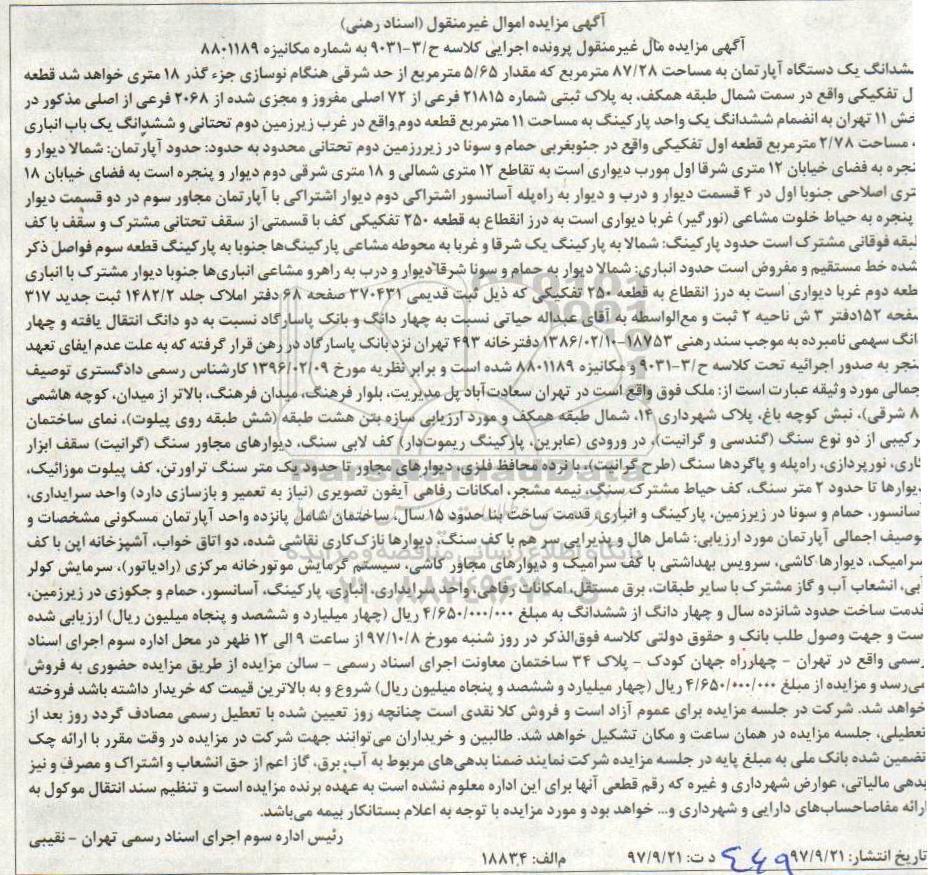 آگهی مزایده اموال غیرمنقول (اسناد رهنی)
آگهی مزایده مال غیرمنقول پرونده اجرایی کلاسه ح/۳-۹۰۳۱ به شماره مکانیزه ۸۸۰۱۱۸۹
ششدانگ یک دستگاه آپارتمان به مساحت ۸۷/۲۸ مترمربع که مقدار ۵/۶۵ مترمربع از حد شرقی هنگام نوسازی جزء گذر ۱۸ متری خواهد شد قطعه
ل تفکیکی واقع در سمت شمال طبقه همکف، به پلاک ثبتی شماره ۲۱۸۱۵ فرعی از ۷۲ اصلی مفروز و مجزی شده از ۲۰۶۸ فرعی از اصلی مذکور در
خش ۱۱ تهران به انضمام ششدانگ یک واحد پارکینگ به مساحت ۱۱ مترمربع قطعه دوم واقع در غرب زیرزمین دوم تحتانی و ششدانگ یک باب انباری
، مساحت ۲/۷۸ مترمربع قطعه اول تفکیکی واقع در جنوبغربی حمام و سونا در زیرزمین دوم تحتانی محدود به حدود: حدود آپارتمان: شمالا دیوار و
نجره به فضای خیابان ۱۲ متری شرقا اول مورب دیواری است به تقاطع ۱۲ متری شمالی و ۱۸ متری شرقی دوم دیوار و پنجره است به فضای خیابان ۱۸
تری اصلاحی جنوبا اول در ۴ قسمت دیوار و درب و دیوار به راه‌پله آسانسور اشتراکی دوم دیوار اشتراکی با آپارتمان مجاور سوم در دو قسمت دیوار
پنجره به حیاط خلوت مشاعی (نورگیر) غربا دیواری است به درز انقطاع به قطعه ۲۵۰ تفکیکی کف با قسمتی از سقف تحتانی مشترک و سقف با کف
لبقه فوقانی مشترک است حدود پارکینگ: شمالا به پارکینگ یک شرقا و غربا به محوطه مشاعی پارکینگ‌ها جنوبا به پارکینگ قطعه سوم فواصل ذکر
شده خط مستقیم و مفروض است حدود انباری: شمالا دیوار به حمام و سونا شرقا دیوار و درب به راهرو مشاعی انباری‌ها جنوبا دیوار مشترک با انباری
طعه دوم غربا دیواری است به درز انقطاع به قطعه ۲۵۰ تفکیکی که ذیل ثبت قدیمی ۳۷۰۴۳۱ صفحه ۶۸ دفتر املاک جلد ۱۴۸۲/۲ ثبت جدید ۳۱۷
صفحه ۱۵۲دفتر ۳ ش ناحیه ۲ ثبت و مع‌الواسطه به آقای عبداله حیاتی نسبت به چهار دانگ و بانک پاسارگاد نسبت به دو دانگ انتقال یافته و چهار
انگ سهمی نامبرده به موجب سند رهنی ۱۸۷۵۳-۱۳۸۶/۰۲/۱۰ دفترخانه ۴۹۳ تهران نزد بانک پاسارگاد در رهن قرار گرفته که به علت عدم ایفای تعهد
نجر به صدور اجرائیه تحت کلاسه ح/۳-۹۰۳۱ و مکانیزه ۸۸۰۱۱۸۹ شده است و برابر نظریه مورخ ۱۳۹۶/۰۲/۰۹ کارشناس رسمی دادگستری توصیف
جمالی مورد وثیقه عبارت است از: ملک فوق واقع است در تهران سعادت‌آباد پل مدیریت، بلوار فرهنگ، میدان فرهنگ، بالاتر از میدان، کوچه هاشمی
۸ شرقی)، نبش کوچه باغ، پلاک شهرداری ۱۴، شمال طبقه همکف و مورد ارزیابی سازه بتن هشت طبقه (شش طبقه روی پیلوت)، نمای ساختمان
رکیبی از دو نوع سنگ (گندسی و گرانیت)، در ورودی (عابرین، پارکینگ ریموت‌دار) کف لابی سنگ، دیوارهای مجاور سنگ (گرانیت) سقف ابزار
کاری، نورپردازی، راه‌پله و پاگردها سنگ (طرح گرانیت)، با نرده محافظ فلزی، دیوارهای مجاور تا حدود یک متر سنگ تراورتن، کف پیلوت موزائیک،
دیوارها تا حدود ۲ متر سنگ، کف حیاط مشترک سنگ، نیمه مشجر، امکانات رفاهی آیفون تصویری (نیاز به تعمیر و بازسازی دارد) واحد سرایداری،
آسانسور، حمام و سونا در زیرزمین، پارکینگ و انباری، قدمت ساخت بنا حدود ۱۵ سال، ساختمان شامل پانزده واحد آپارتمان مسکونی مشخصات و
توصیف اجمالی آپارتمان مورد ارزیابی: شامل هال و پذیرایی سر هم با کف سنگ، دیوارها نازک‌کاری نقاشی شده، دو اتاق خواب، آشپزخانه اپن با کف
سرامیک، دیوارها کاشی، سرویس بهداشتی با کف سرامیک و دیوارهای مجاور کاشی، سیستم گرمایش موتورخانه مرکزی (رادیاتور)، سرمایش کولر
آبی، انشعاب آب و گاز مشترک با سایر طبقات، برق مستقل، امکانات رفاهی، واحد سرایداری، انباری، پارکینگ، آسانسور، حمام و جکوزی در زیرزمین،
قدمت ساخت حدود شانزده سال و چهار دانگ از ششدانگ به مبلغ ۴/۶۵۰/۰۰۰/۰۰۰ ریال (چهار میلیارد و ششصد و پنجاه میلیون ریال) ارزیابی شده
است و جهت وصول طلب بانک و حقوق دولتی کلاسه فوق‌الذکر در روز شنبه مورخ ۹۷/۱۰/۸ از ساعت ۹ الی ۱۲ ظهر در محل اداره سوم اجرای اسناد
رسمی واقع در تهران - چهارراه جهان کودک - پلاک ۳۴ ساختمان معاونت اجرای اسناد رسمی - سالن مزایده از طریق مزایده حضوری به فروش
می‌رسد و مزایده از مبلغ ۴/۶۵۰/۰۰۰/۰۰۰ ریال (چهار میلیارد و ششصد و پنجاه میلیون ریال) شروع و به بالاترین قیمت که خریدار داشته باشد فروخته
خواهد شد. شرکت در جلسه مزایده برای عموم آزاد است و فروش کلا نقدی است چنانچه روز تعیین شده با تعطیل رسمی مصادف گردد روز بعد از
تعطیلی، جلسه مزایده در همان ساعت و مکان تشکیل خواهد شد. طالبین و خریداران می‌توانند جهت شرکت در مزایده در وقت مقرر با ارائه چک
تضمین شده بانک ملی به مبلغ پایه در جلسه مزایده شرکت نمایند ضمنا بدهی‌های مربوط به آب، برق، گاز اعم از حق انشعاب و اشتراک و مصرف و نیز
بدهی مالیاتی، عوارض شهرداری و غیره که رقم قطعی آنها برای این اداره معلوم نشده است به عهده برنده مزایده است و تنظیم سند انتقال موکول به
ارائه مفاصاحساب‌های دارایی و شهرداری و... خواهد بود و مورد مزایده با توجه به اعلام بستانکار بیمه می‌باشد.
رئیس اداره سوم اجرای اسناد رسمی تهران - نقیبی
تاریخ انتشار: ۹۷/۹/۲۱ د ت: ۹۷/۹/۲۱ م‌الف: ۱۸۸۳۴
ParsNamadData
پایگاه اطلاع رسانی مناقصه و مزایده